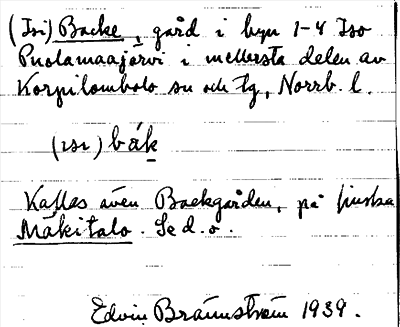 (Isi) Backe, gård i byn 1-4 Iso
Puolamaajärvi i mellersta delen av
Korpilombolo sn och tg, Norrb. l.
(ısı) bák
Kallas även Backgården, på finska
Mäkitalo. Se d. o.
Edvin Brännström 1939.